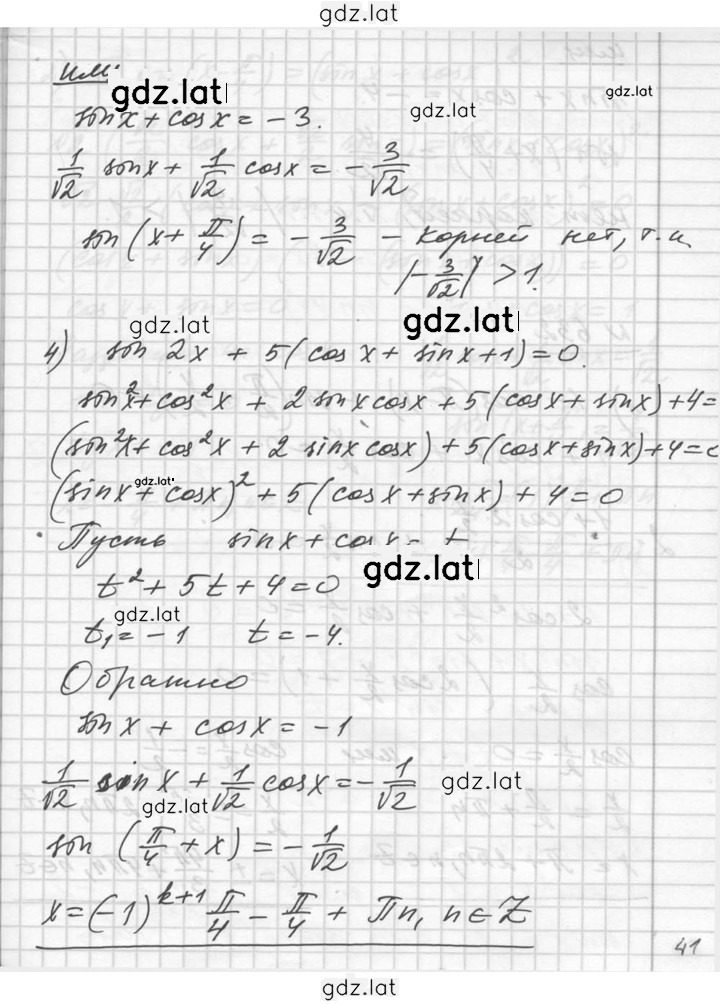 gdz.lat
или:
gdz.lat
gdz.lat
sin x + cos x = -3.
1/√2 sin x + 1/√2 cos x = -3/√2
gdz.lat
sin(x + π/4) = -3/√2 - корней нет, т.к
|-3/√2| > 1.
gdz.lat
gdz.lat
4) sin 2x + 5(cos x + sin x + 1) = 0.
sin²x + cos²x + 2 sin x cos x + 5(cos x + sin x) + 4 =
(sin²x + cos²x + 2 sin x cos x) + 5(cos x + sin x) + 4 = 0
gdz.lat
(sin x + cos x)² + 5(cos x + sin x) + 4 = 0
Пусть sin x + cos x = t
gdz.lat
t² + 5t + 4 = 0
gdz.lat
t₁ = -1 t = -4.
Обратно
sin x + cos x = -1
1/√2 sin x + 1/√2 cos x = -1/√2
gdz.lat
gdz.lat
sin(π/4 + x) = -1/√2
x = (-1)^(k+1) π/4 - π/4 + πn, n ∈ Z
41
gdz.lat